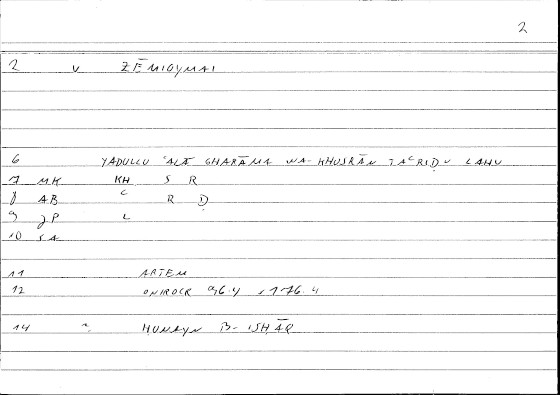 2
2 v ZĒMIOYMAI
6 YADULLU ʿALĀ GHARĀMA WA-KHUSRĀN TAʿRIḌU LAHU
7 MK KH S R
8 AB ʿ R Ḍ
9 JP L
10 SA
11 ARTEM
12 ONIROCR 96.4 176.4
14 HUNAYN B- ISHĀQ